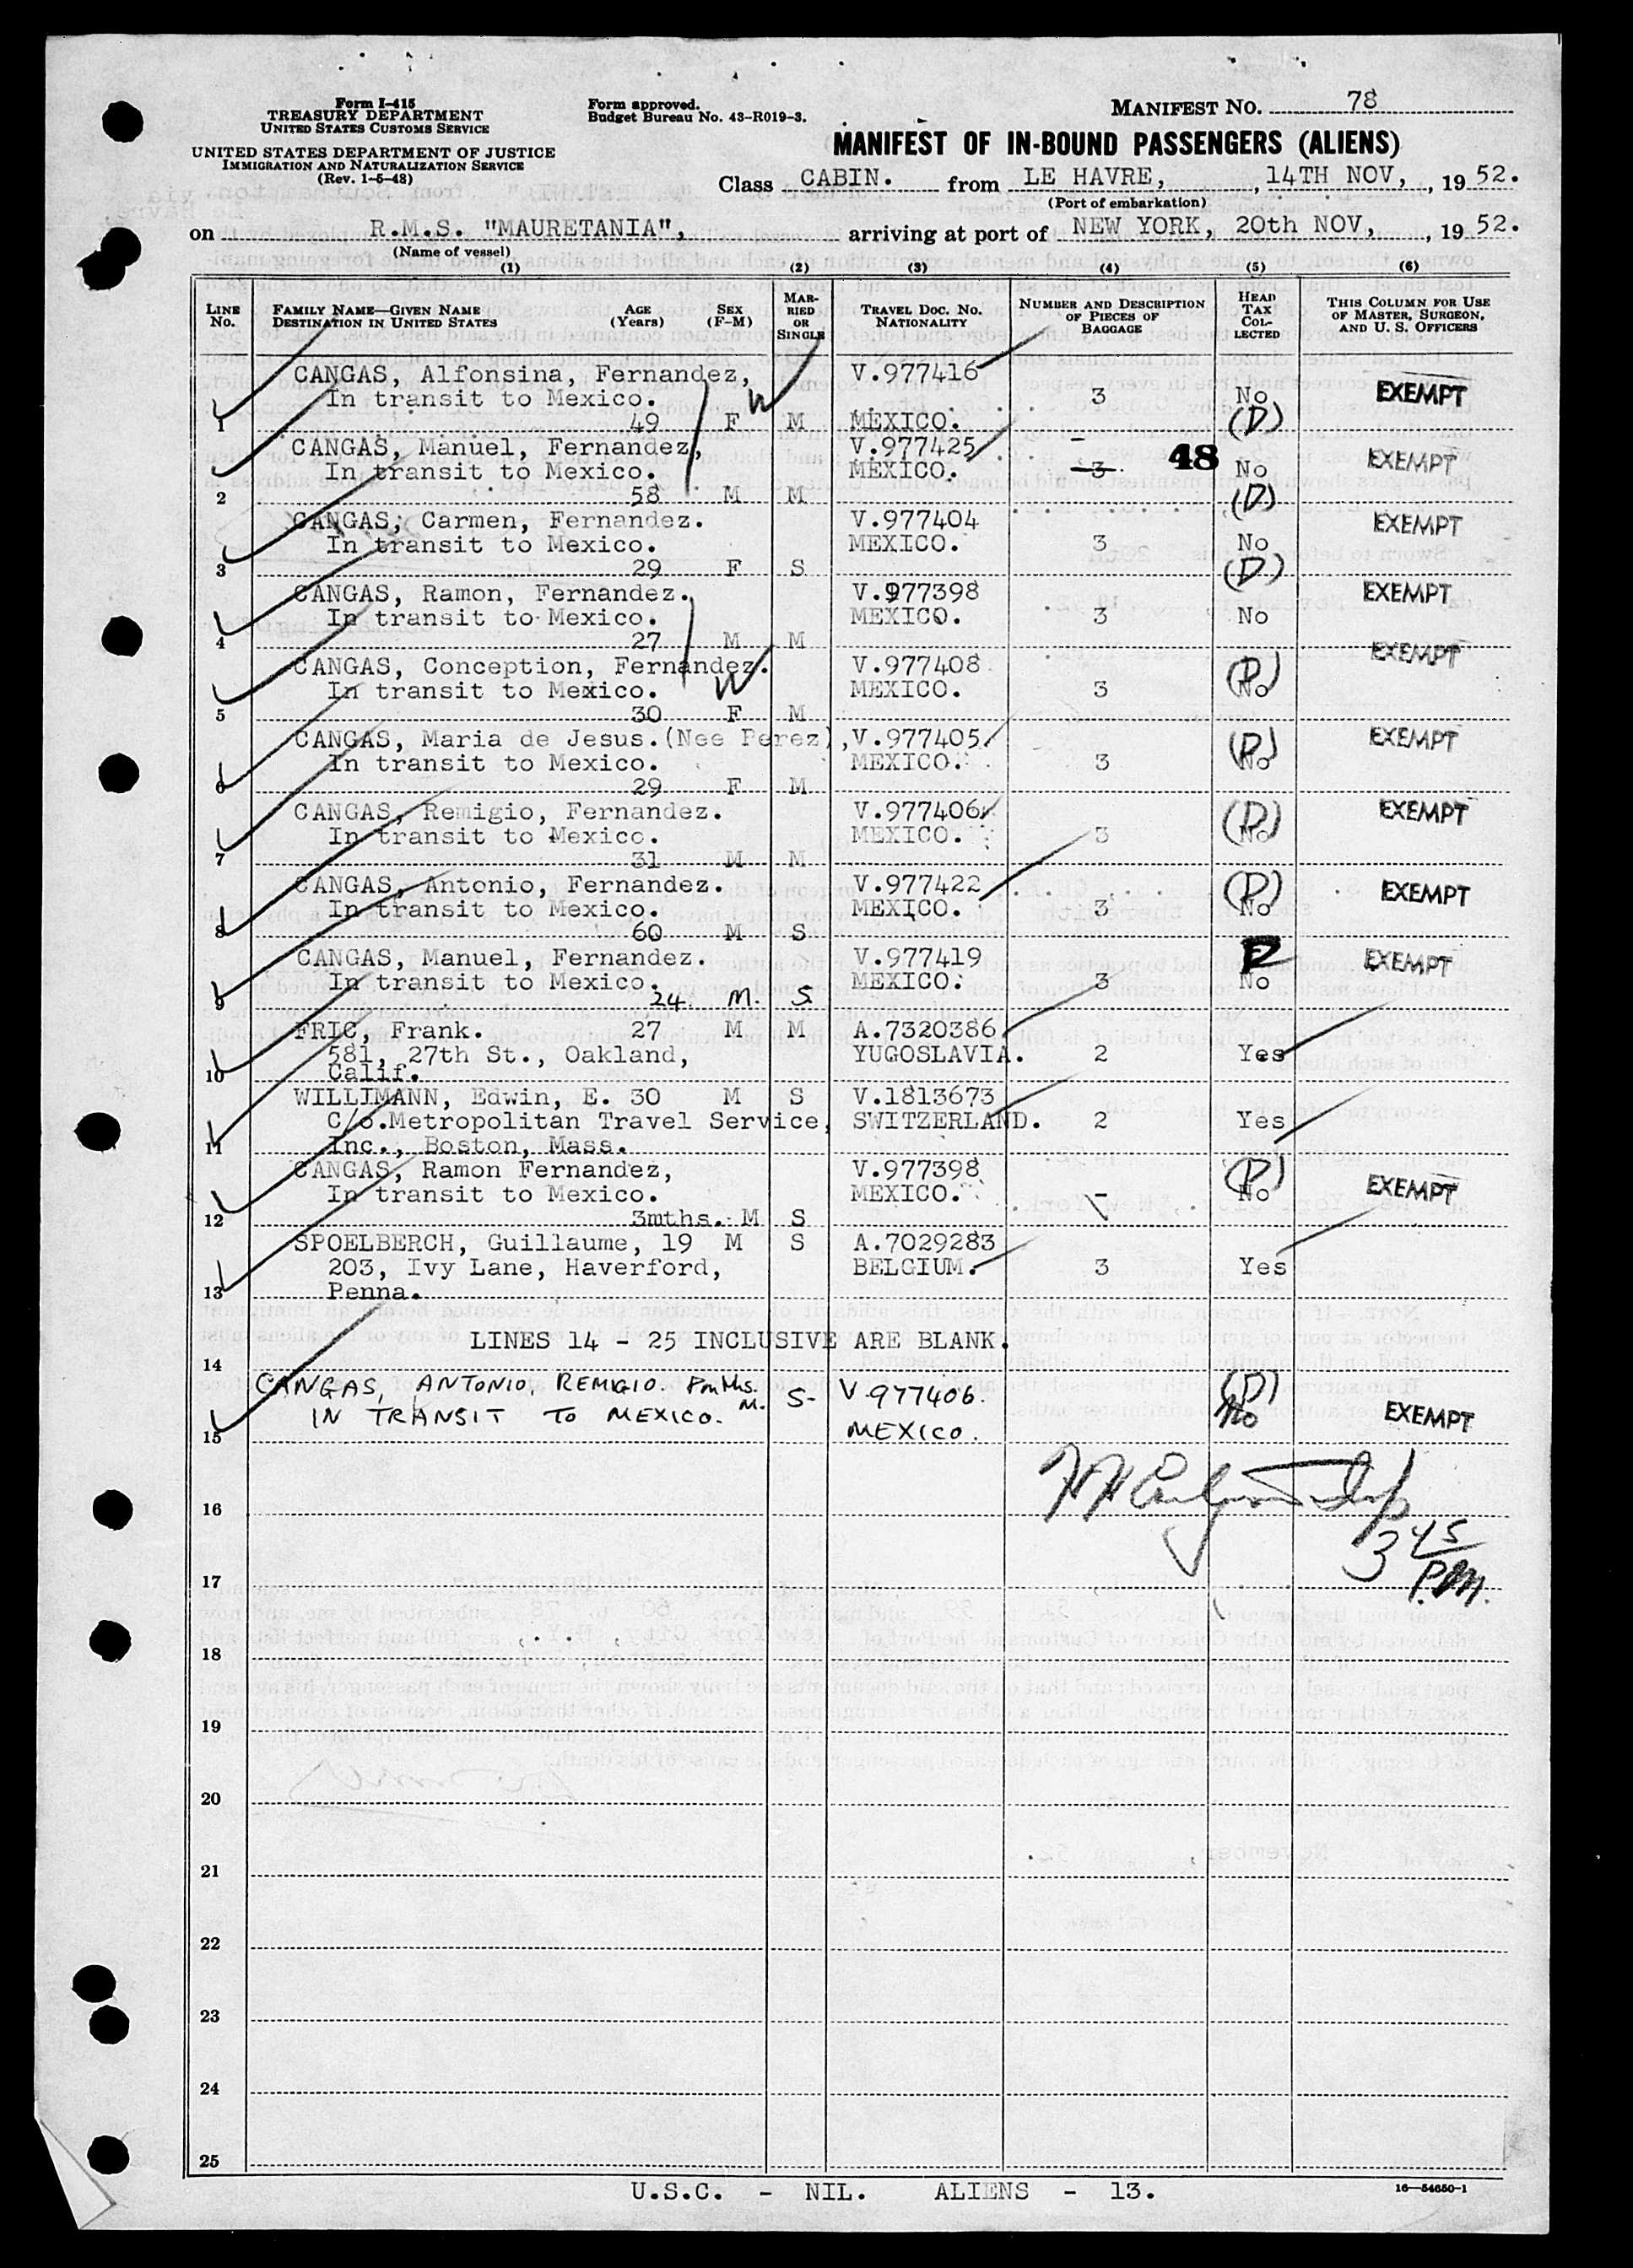 Form I-415
TREASURY DEPARTMENT
UNITED STATES CUSTOMS SERVICE
UNITED STATES DEPARTMENT OF JUSTICE
IMMIGRATION AND NATURALIZATION SERVICE
(Rev. 1-5-48)
Form approved.
Budget Bureau No. 43-R019-3.
MANIFEST NO. 78
MANIFEST OF IN-BOUND PASSENGERS (ALIENS)
Class CABIN. from LE HAVRE, , 14TH NOV, , 19 52.
(Port of embarkation)
on R.M.S. "MAURETANIA", arriving at port of NEW YORK, 20th NOV, , 19 52.
(Name of vessel)
(1) (2) (3) (4) (5) (6)
LINE No. FAMILY NAME—GIVEN NAME DESTINATION IN UNITED STATES AGE (Years) SEX (F-M) MARRIED OR SINGLE TRAVEL DOC. NO. NATIONALITY NUMBER AND DESCRIPTION OF PIECES OF BAGGAGE HEAD TAX COLLECTED THIS COLUMN FOR USE OF MASTER, SURGEON, AND U. S. OFFICERS
CANGAS, Alfonsina, Fernandez, V.977416
In transit to Mexico. W 3 No EXEMPT
1 49 F M MEXICO. (D)
CANGAS, Manuel, Fernandez, V.977425 -
In transit to Mexico. MEXICO. 3 48 No EXEMPT
2 58 M M (D)
CANGAS, Carmen, Fernandez. V.977404 EXEMPT
In transit to Mexico. MEXICO. 3 No
3 29 F S (D)
CANGAS, Ramon, Fernandez. V.977398 EXEMPT
In transit to Mexico. MEXICO. 3 No
4 27 M M
CANGAS, Conception, Fernandez. V.977408 EXEMPT
In transit to Mexico. W MEXICO. 3 (D) No
5 30 F M
CANGAS, Maria de Jesus.(Nee Perez), V.977405 EXEMPT
In transit to Mexico. MEXICO. 3 (D) No
6 29 F M
CANGAS, Remigio, Fernandez. V.977406 EXEMPT
In transit to Mexico. MEXICO. 3 (D) No
7 31 M M
CANGAS, Antonio, Fernandez. V.977422 EXEMPT
In transit to Mexico. MEXICO. 3 (D) No
8 60 M S
CANGAS, Manuel, Fernandez. V.977419 EXEMPT
In transit to Mexico. MEXICO. 3 No
9 24 M. S
FRIC, Frank. 27 M M A.7320386
581, 27th St., Oakland, YUGOSLAVIA. 2 Yes
10 Calif.
WILLIMANN, Edwin, E. 30 M S V.1813673
C/o.Metropolitan Travel Service, SWITZERLAND. 2 Yes
11 Inc., Boston, Mass.
CANGAS, Ramon Fernandez, V.977398 (D)
In transit to Mexico. MEXICO. - No EXEMPT
12 3mths. M S
SPOELBERCH, Guillaume, 19 M S A.7029283
203, Ivy Lane, Haverford, BELGIUM. 3 Yes
13 Penna.
LINES 14 - 25 INCLUSIVE ARE BLANK.
14
CANGAS, ANTONIO, REMIGIO. mths. M. S- V.977406. (D)
IN TRANSIT TO MEXICO. No EXEMPT
15 MEXICO.
16
3 45 P.M.
17
18
19
20
21
22
23
24
25
U.S.C. - NIL. ALIENS - 13.
16—54650-1